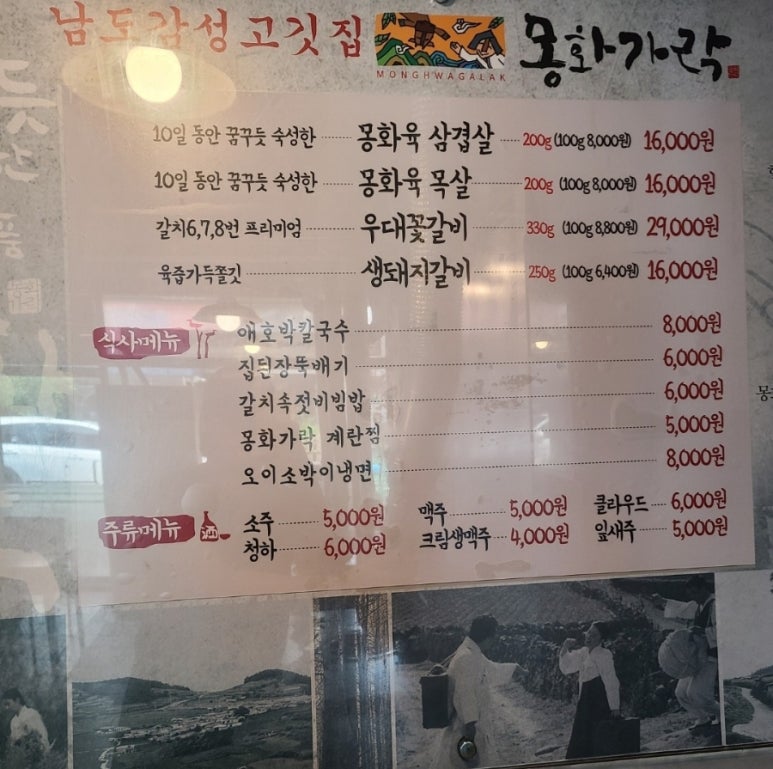 남도감성고깃집
MONGHWAGALAK
몽화가락
10일 동안 꿈꾸듯 숙성한 몽화육 삼겹살 200g (100g 8,000원) 16,000원
10일 동안 꿈꾸듯 숙성한 몽화육 목살 200g (100g 8,000원) 16,000원
갈치6,7,8번 프리미엄 우대꽃갈비 330g (100g 8,800원) 29,000원
육즙가득쫄깃 생돼지갈비 250g (100g 6,400원) 16,000원
식사메뉴
애호박칼국수 8,000원
집된장뚝배기 6,000원
갈치속젓비빔밥 6,000원
몽화가락 계란찜 5,000원
오이소박이냉면 8,000원
주류메뉴
소주 5,000원 맥주 5,000원 클라우드 6,000원
청하 6,000원 크림생맥주 4,000원 잎새주 5,000원